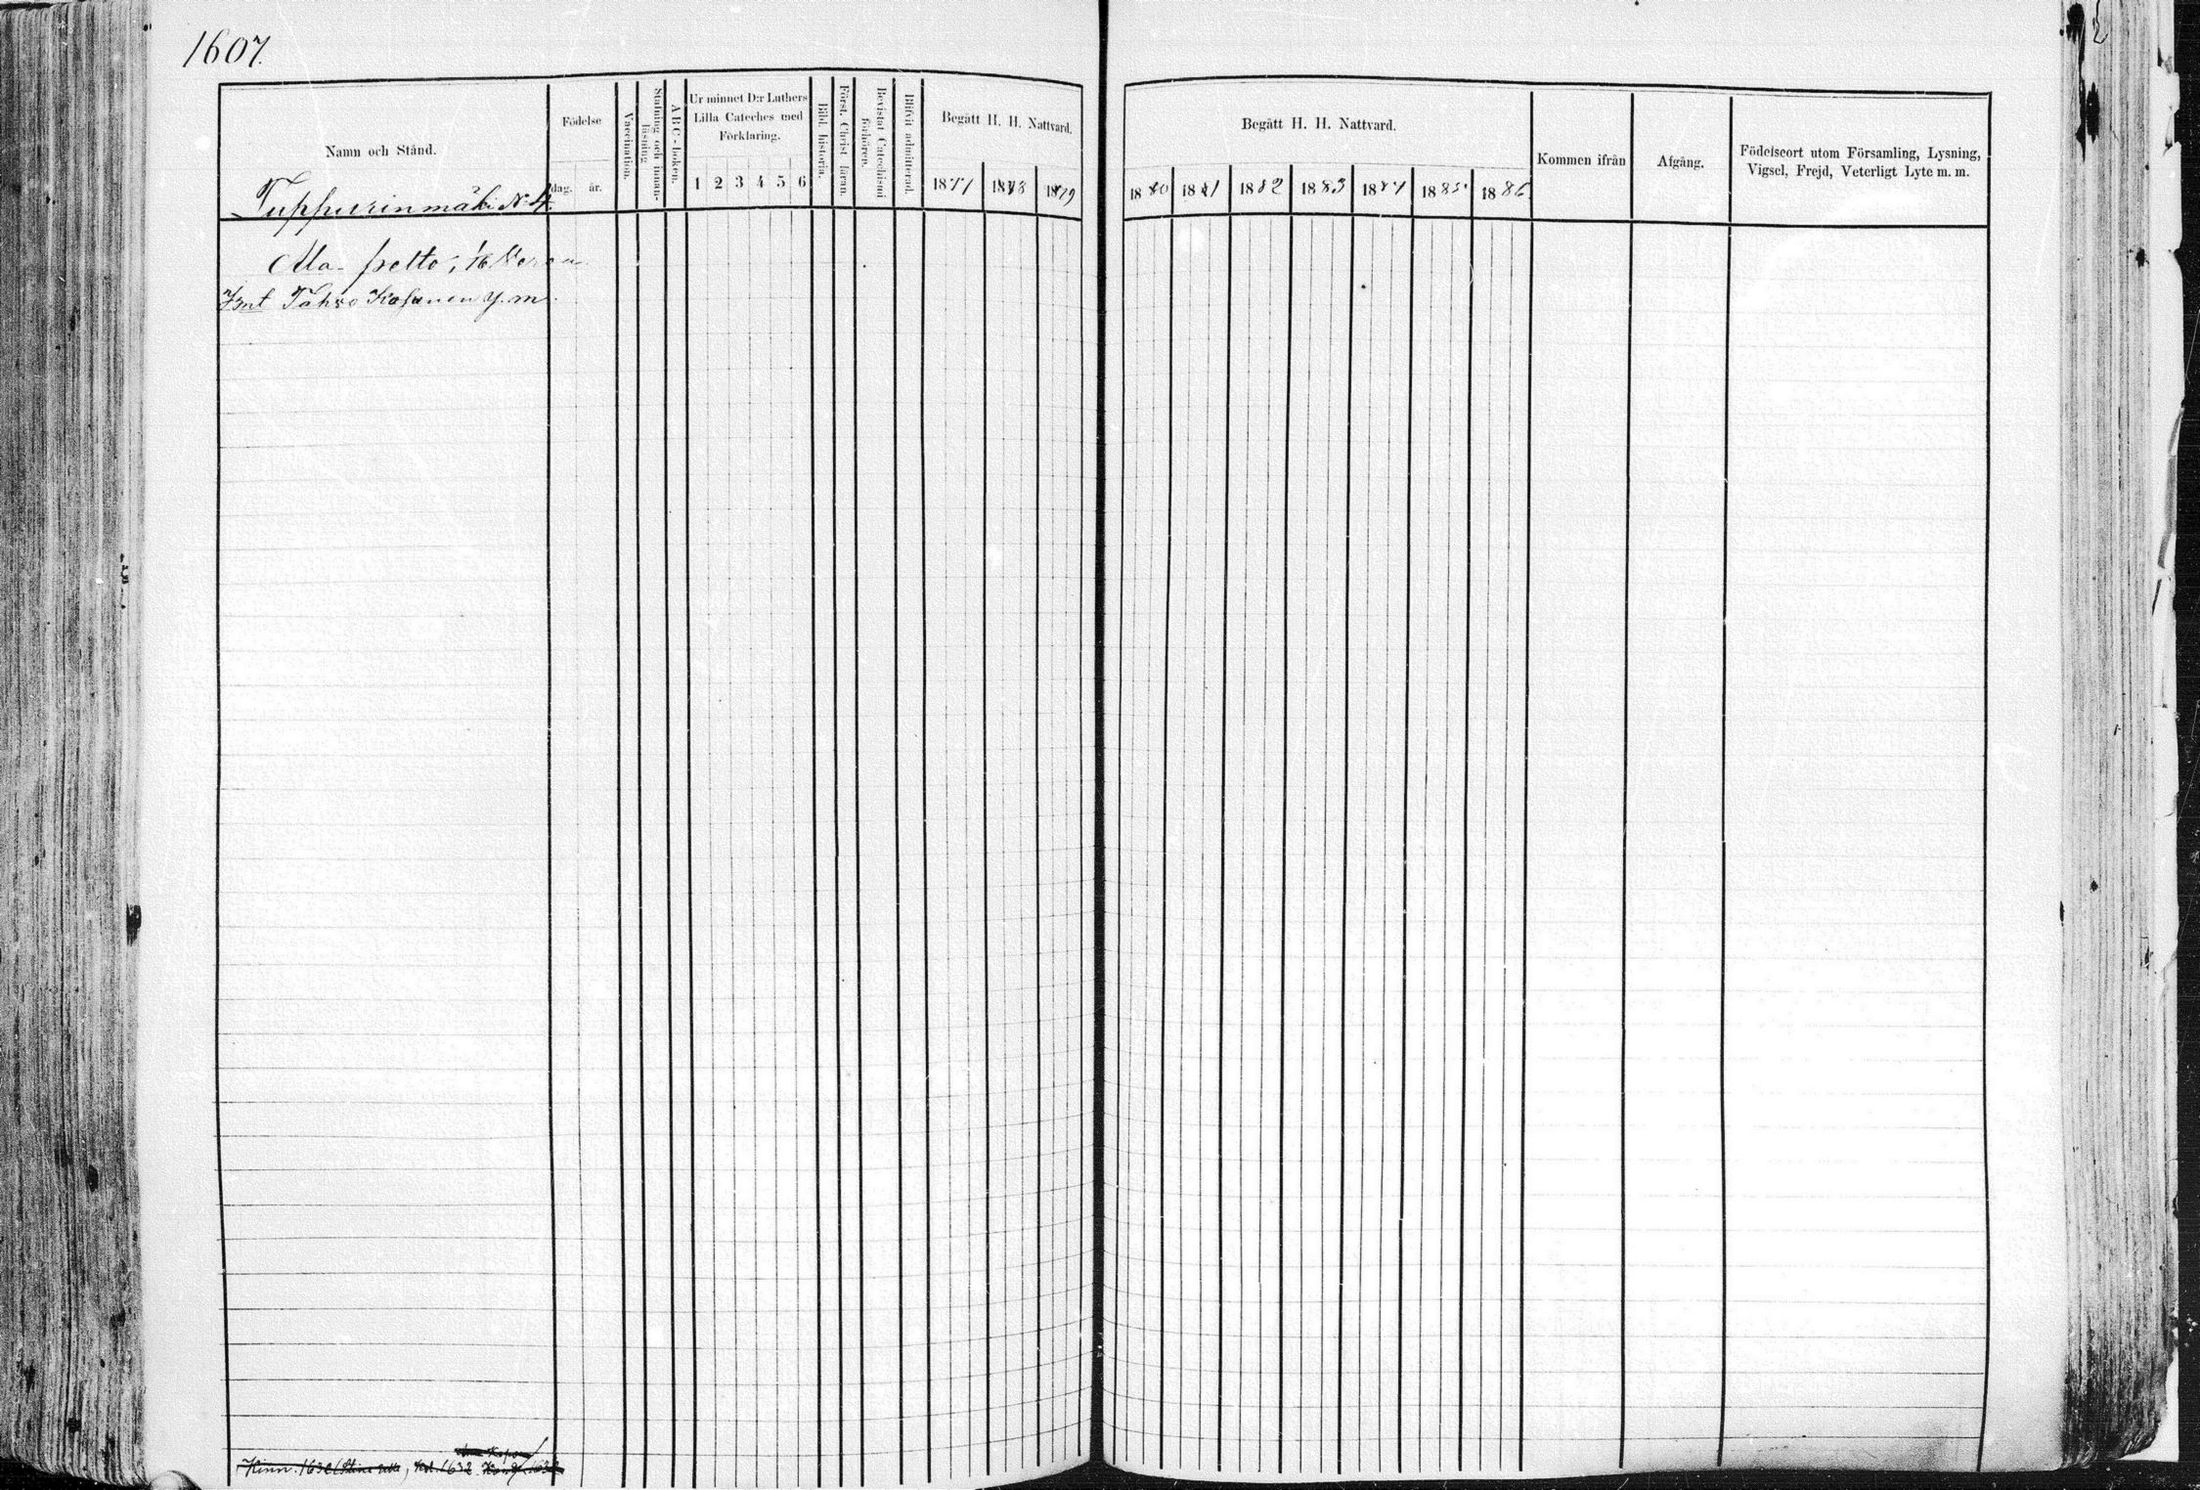 1607.
Namn och Stånd.
Tuppurinmäki N:4.
Födelse
dag. år.
Vaccination.
Stafning och innan-läsning
ABC-boken.
Ur minnet D:r Luthers
Lilla Cateches med
Förklaring.
1 2 3 4 5 6
Bibl. historia.
Först. Christ läran.
Bevistat Catechismi förhören.
Blifvit admitterad.
Begått H. H. Nattvard.
1877 1878 1879
Begått H. H. Nattvard.
1880 1881 1882 1883 1884 1885 1886
Kommen ifrån
Afgång.
Födelseort utom Församling, Lysning,
Vigsel, Frejd, Veterligt Lyte m. m.
Ala-pelto, 16
Tahvo y.m.
Kinn. 1632